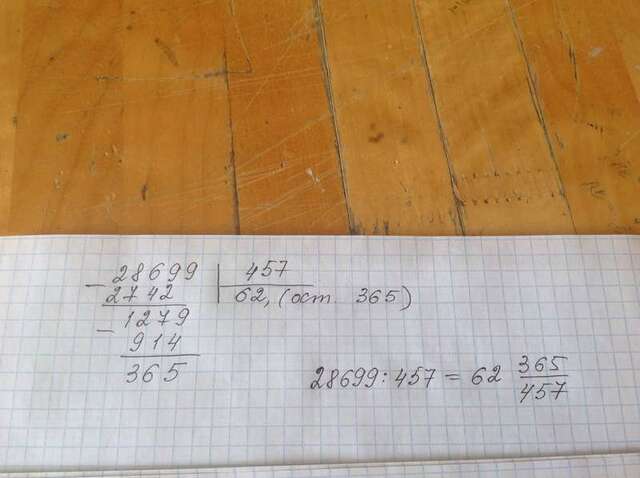 28699 457
2742 62, (ост. 365)
1279
914
365
28699:457 = 62 365/457